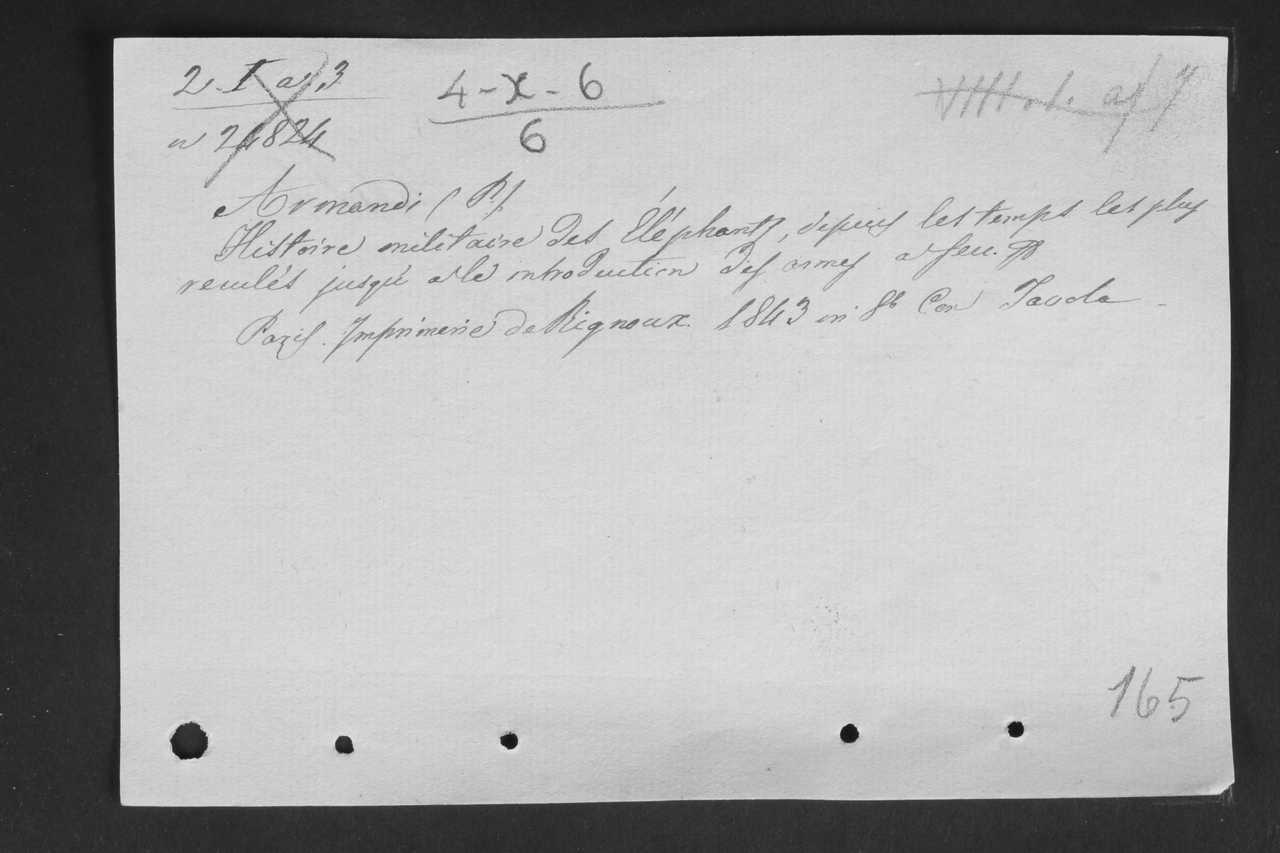 2. I a 3
n 24824
4-X-6
6
Armandi (P).
Histoire militaire des Eléphants, depuis les temps les plus
reculés jusqu' a le introduction des armes a feu.
Paris. Imprimerie de Rignoux. 1843 in 8° Con Tavole
165